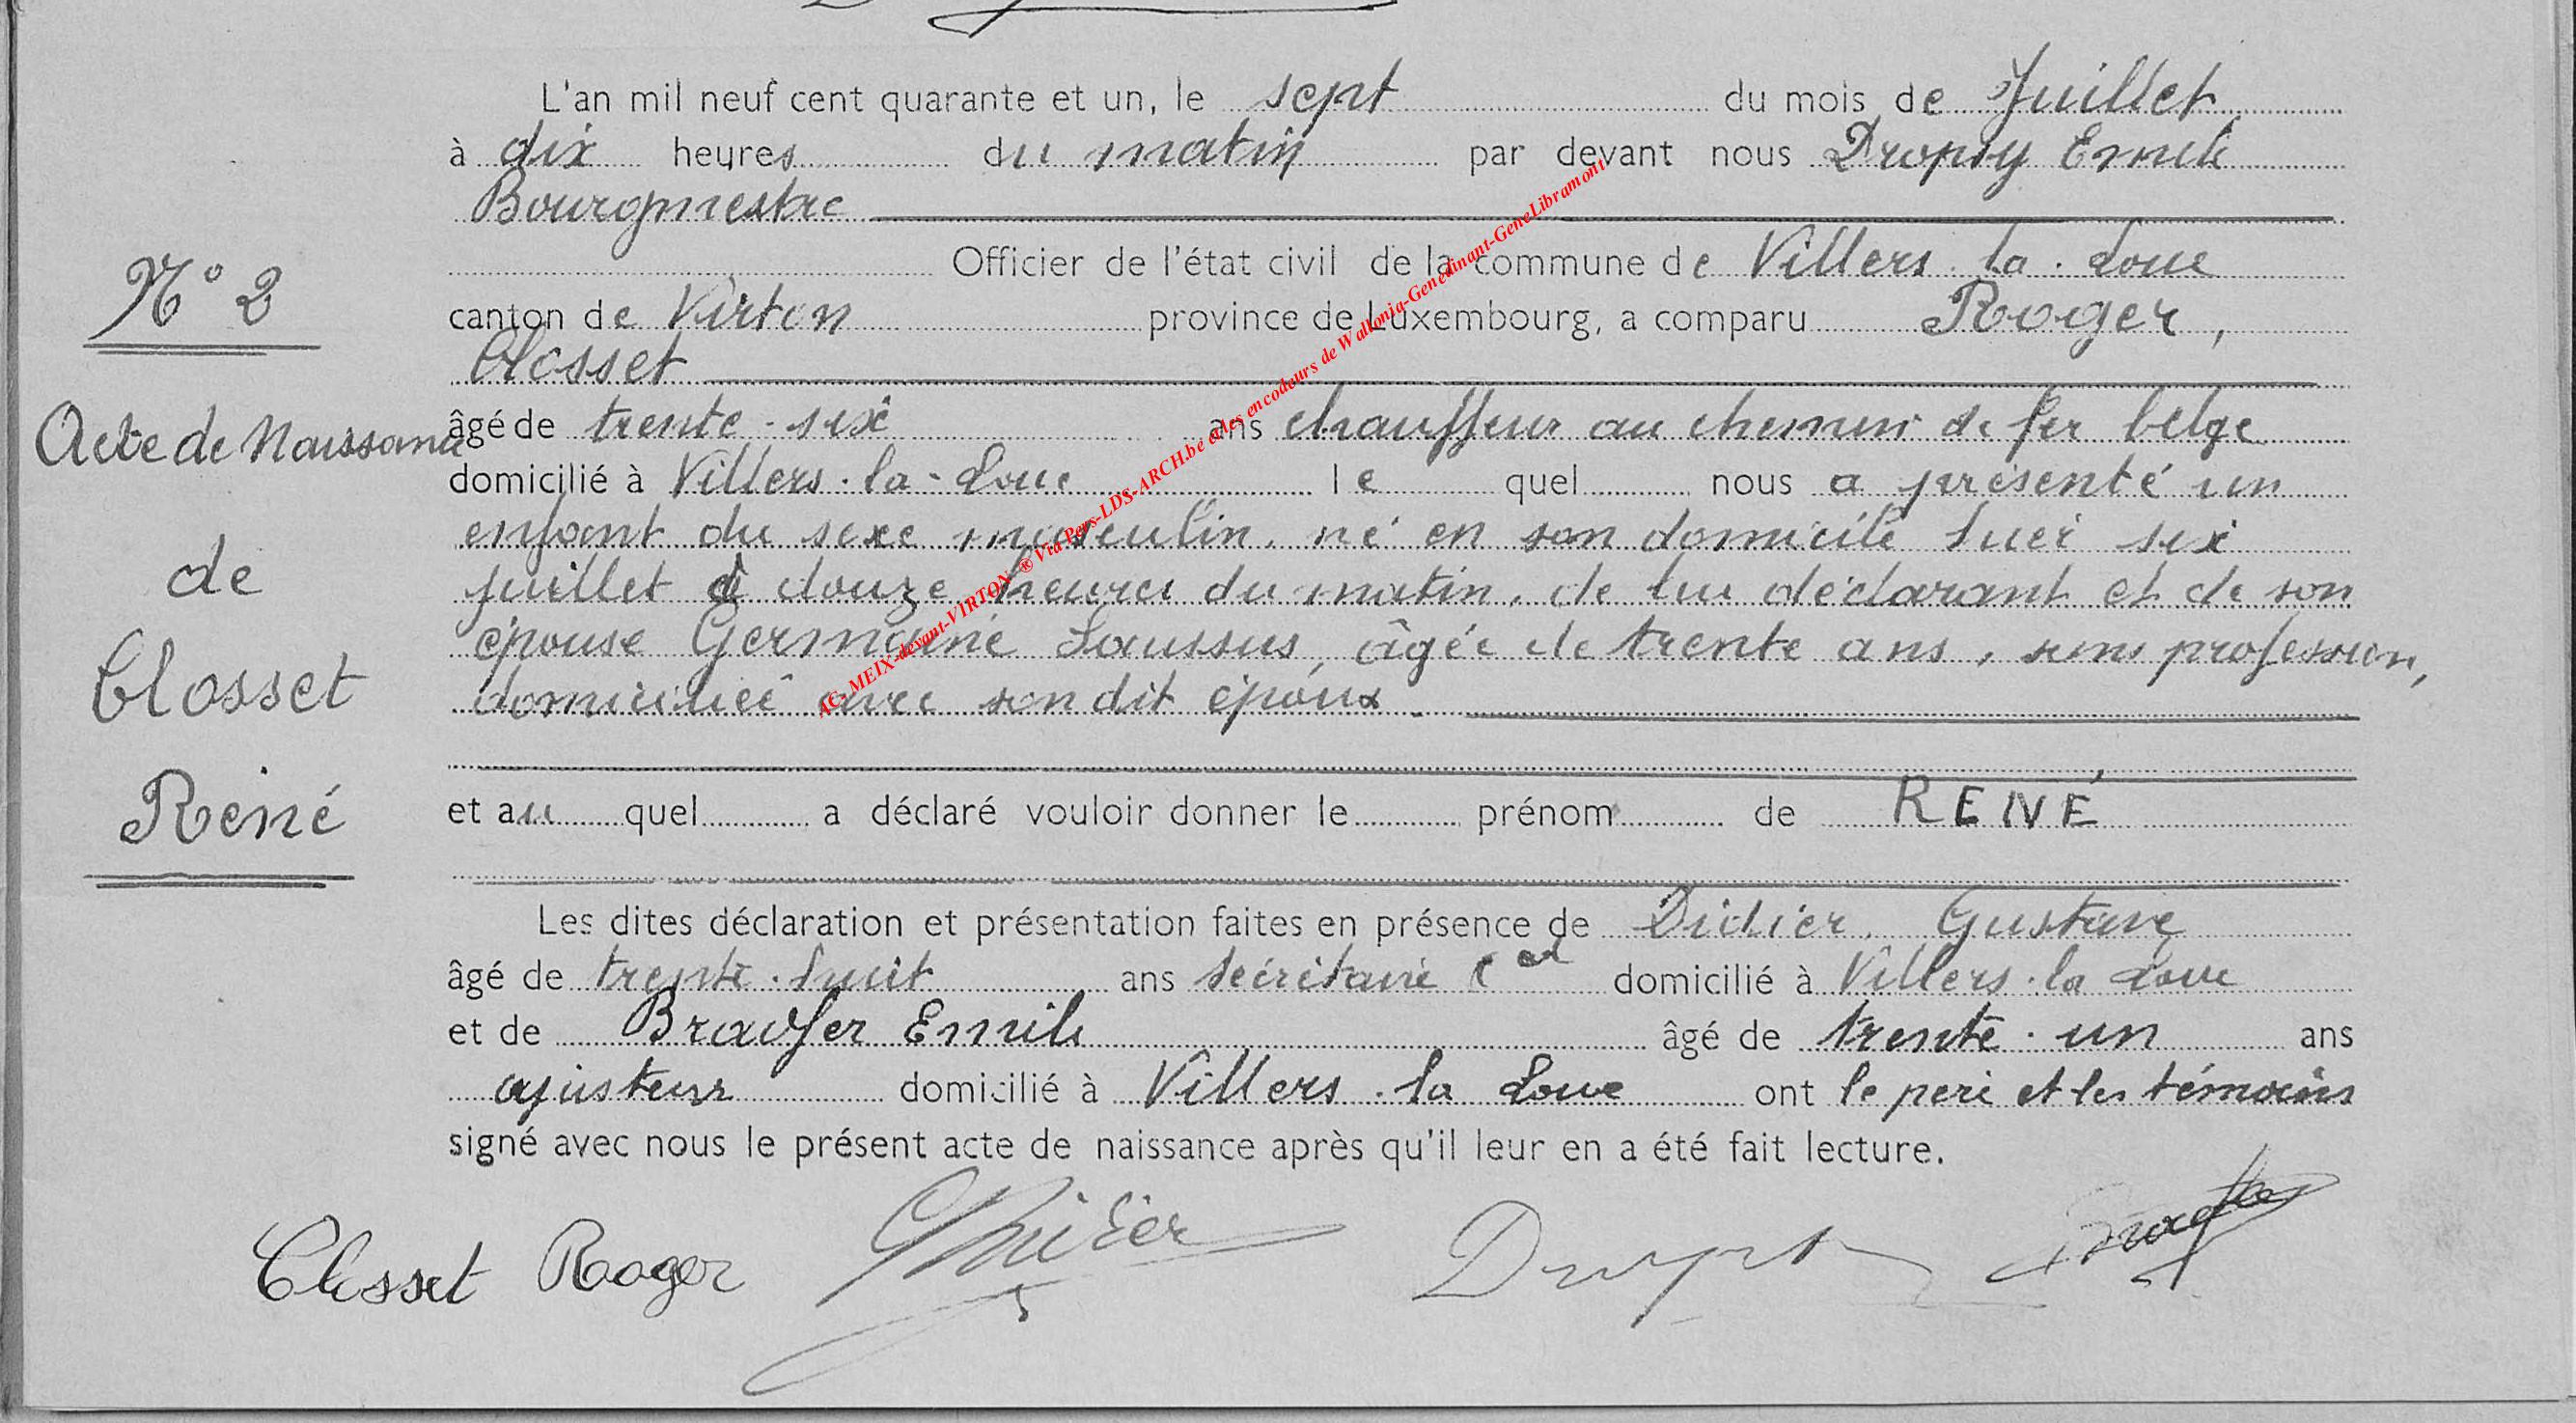 L'an mil neuf cent quarante et un, le sept du mois de Juillet
à dix heures du matin par devant nous Dropsy Emile
Bourgmestre
Officier de l'état civil de la commune de Villers-la-Loue
canton de Virton province de Luxembourg, a comparu Roger,
Closset
âgé de trente-six ans chauffeur au chemin de fer belge
domicilié à Villers-la-Loue lequel nous a présenté un
enfant du sexe masculin, né en son domicile hier six
juillet à douze heures du matin, de lui déclarant et de son
épouse Germaine Saussus, âgée de trente ans, sans profession,
domiciliée avec son dit époux
et au quel a déclaré vouloir donner le prénom de RENÉ
Les dites déclaration et présentation faites en présence de Didier Gustave
âgé de trente-huit ans secrétaire cal domicilié à Villers-la Loue
et de Emile âgé de trente-un ans
ajusteur domicilié à Villers-la Loue ont le père et les témoins
signé avec nous le présent acte de naissance après qu'il leur en a été fait lecture.
N° 2
Acte de Naissance
de
Closset
René
Closset Roger GDidier Dropsy
AC- MEIX-devant-VIRTON ® Via Pers-LDS-ARCH.be et les encodeurs de Wallonia-Genedinant-GeneLibramont-